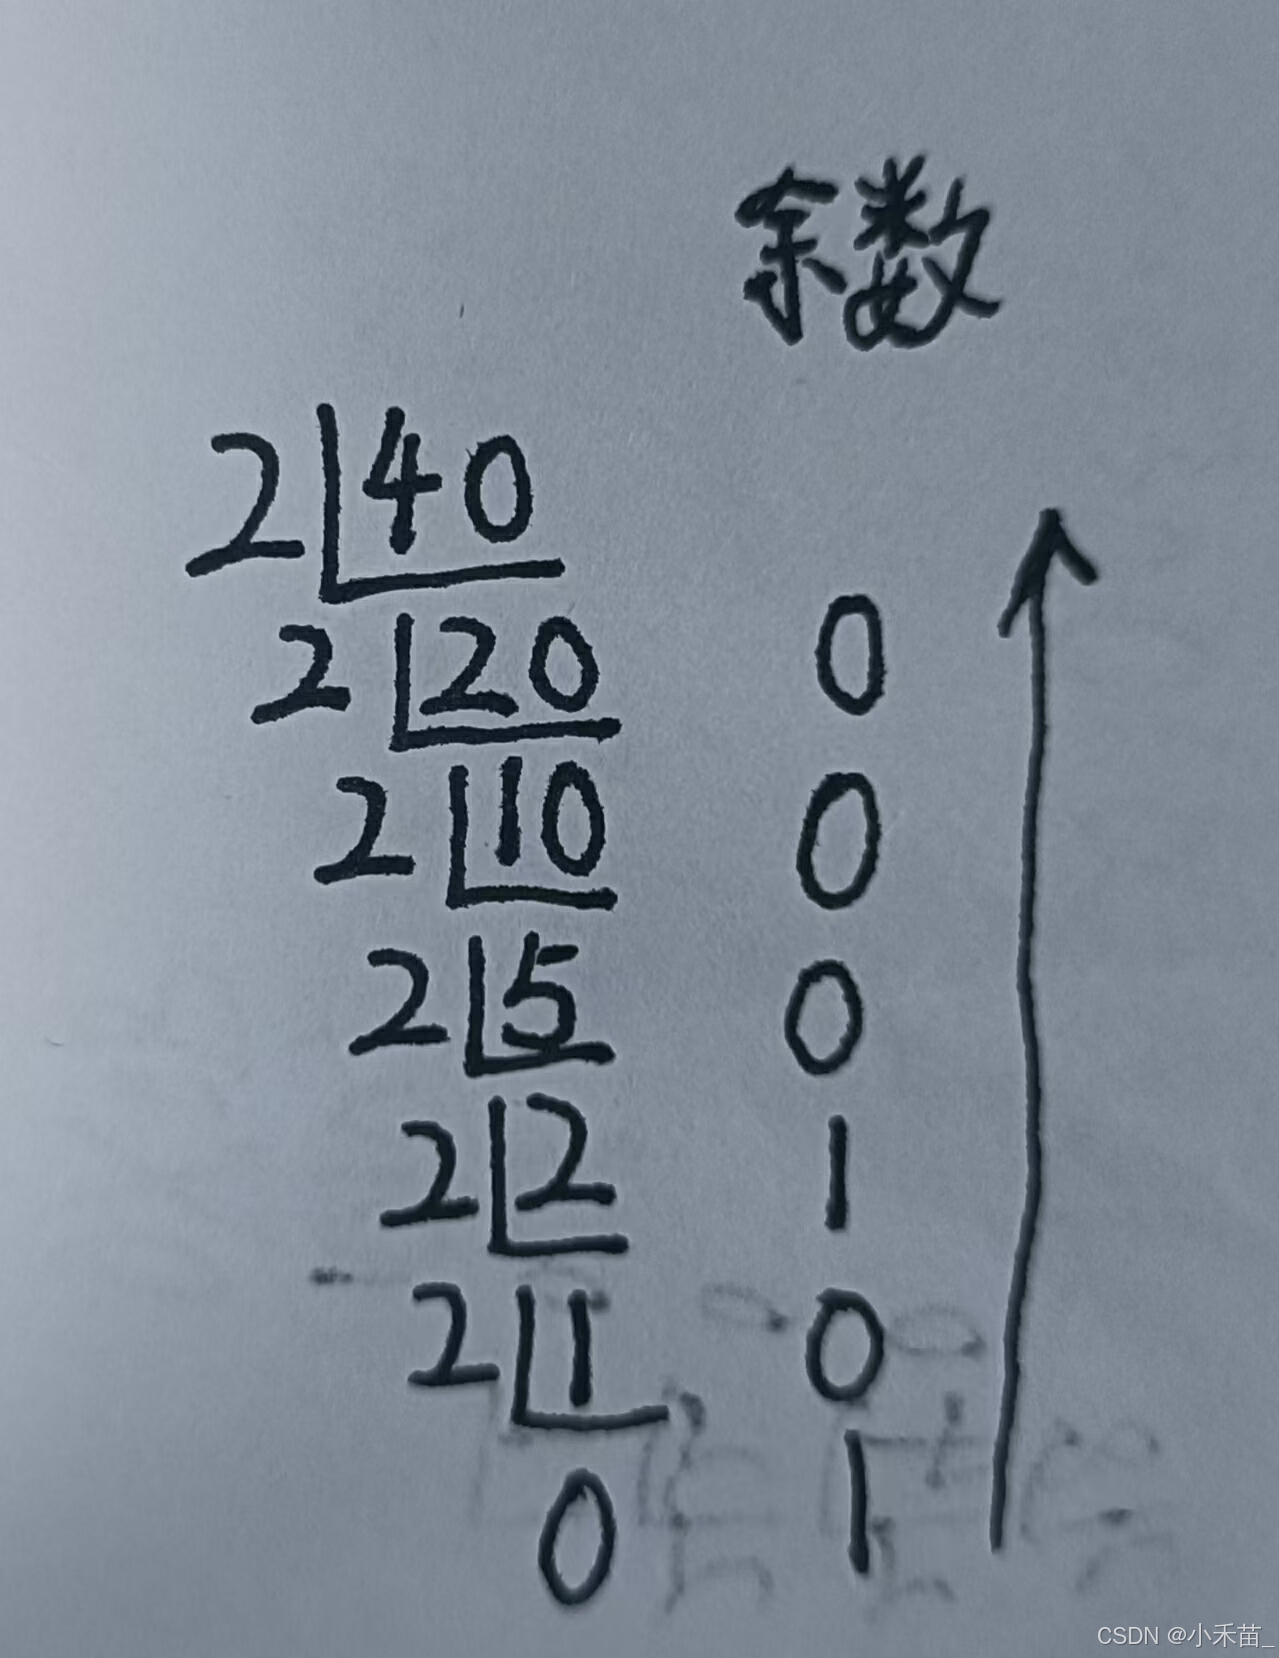 余数
2 40
2 20 0
2 10 0
2 5 0
2 2 1
2 1 0
0 1
CSDN @小禾苗_